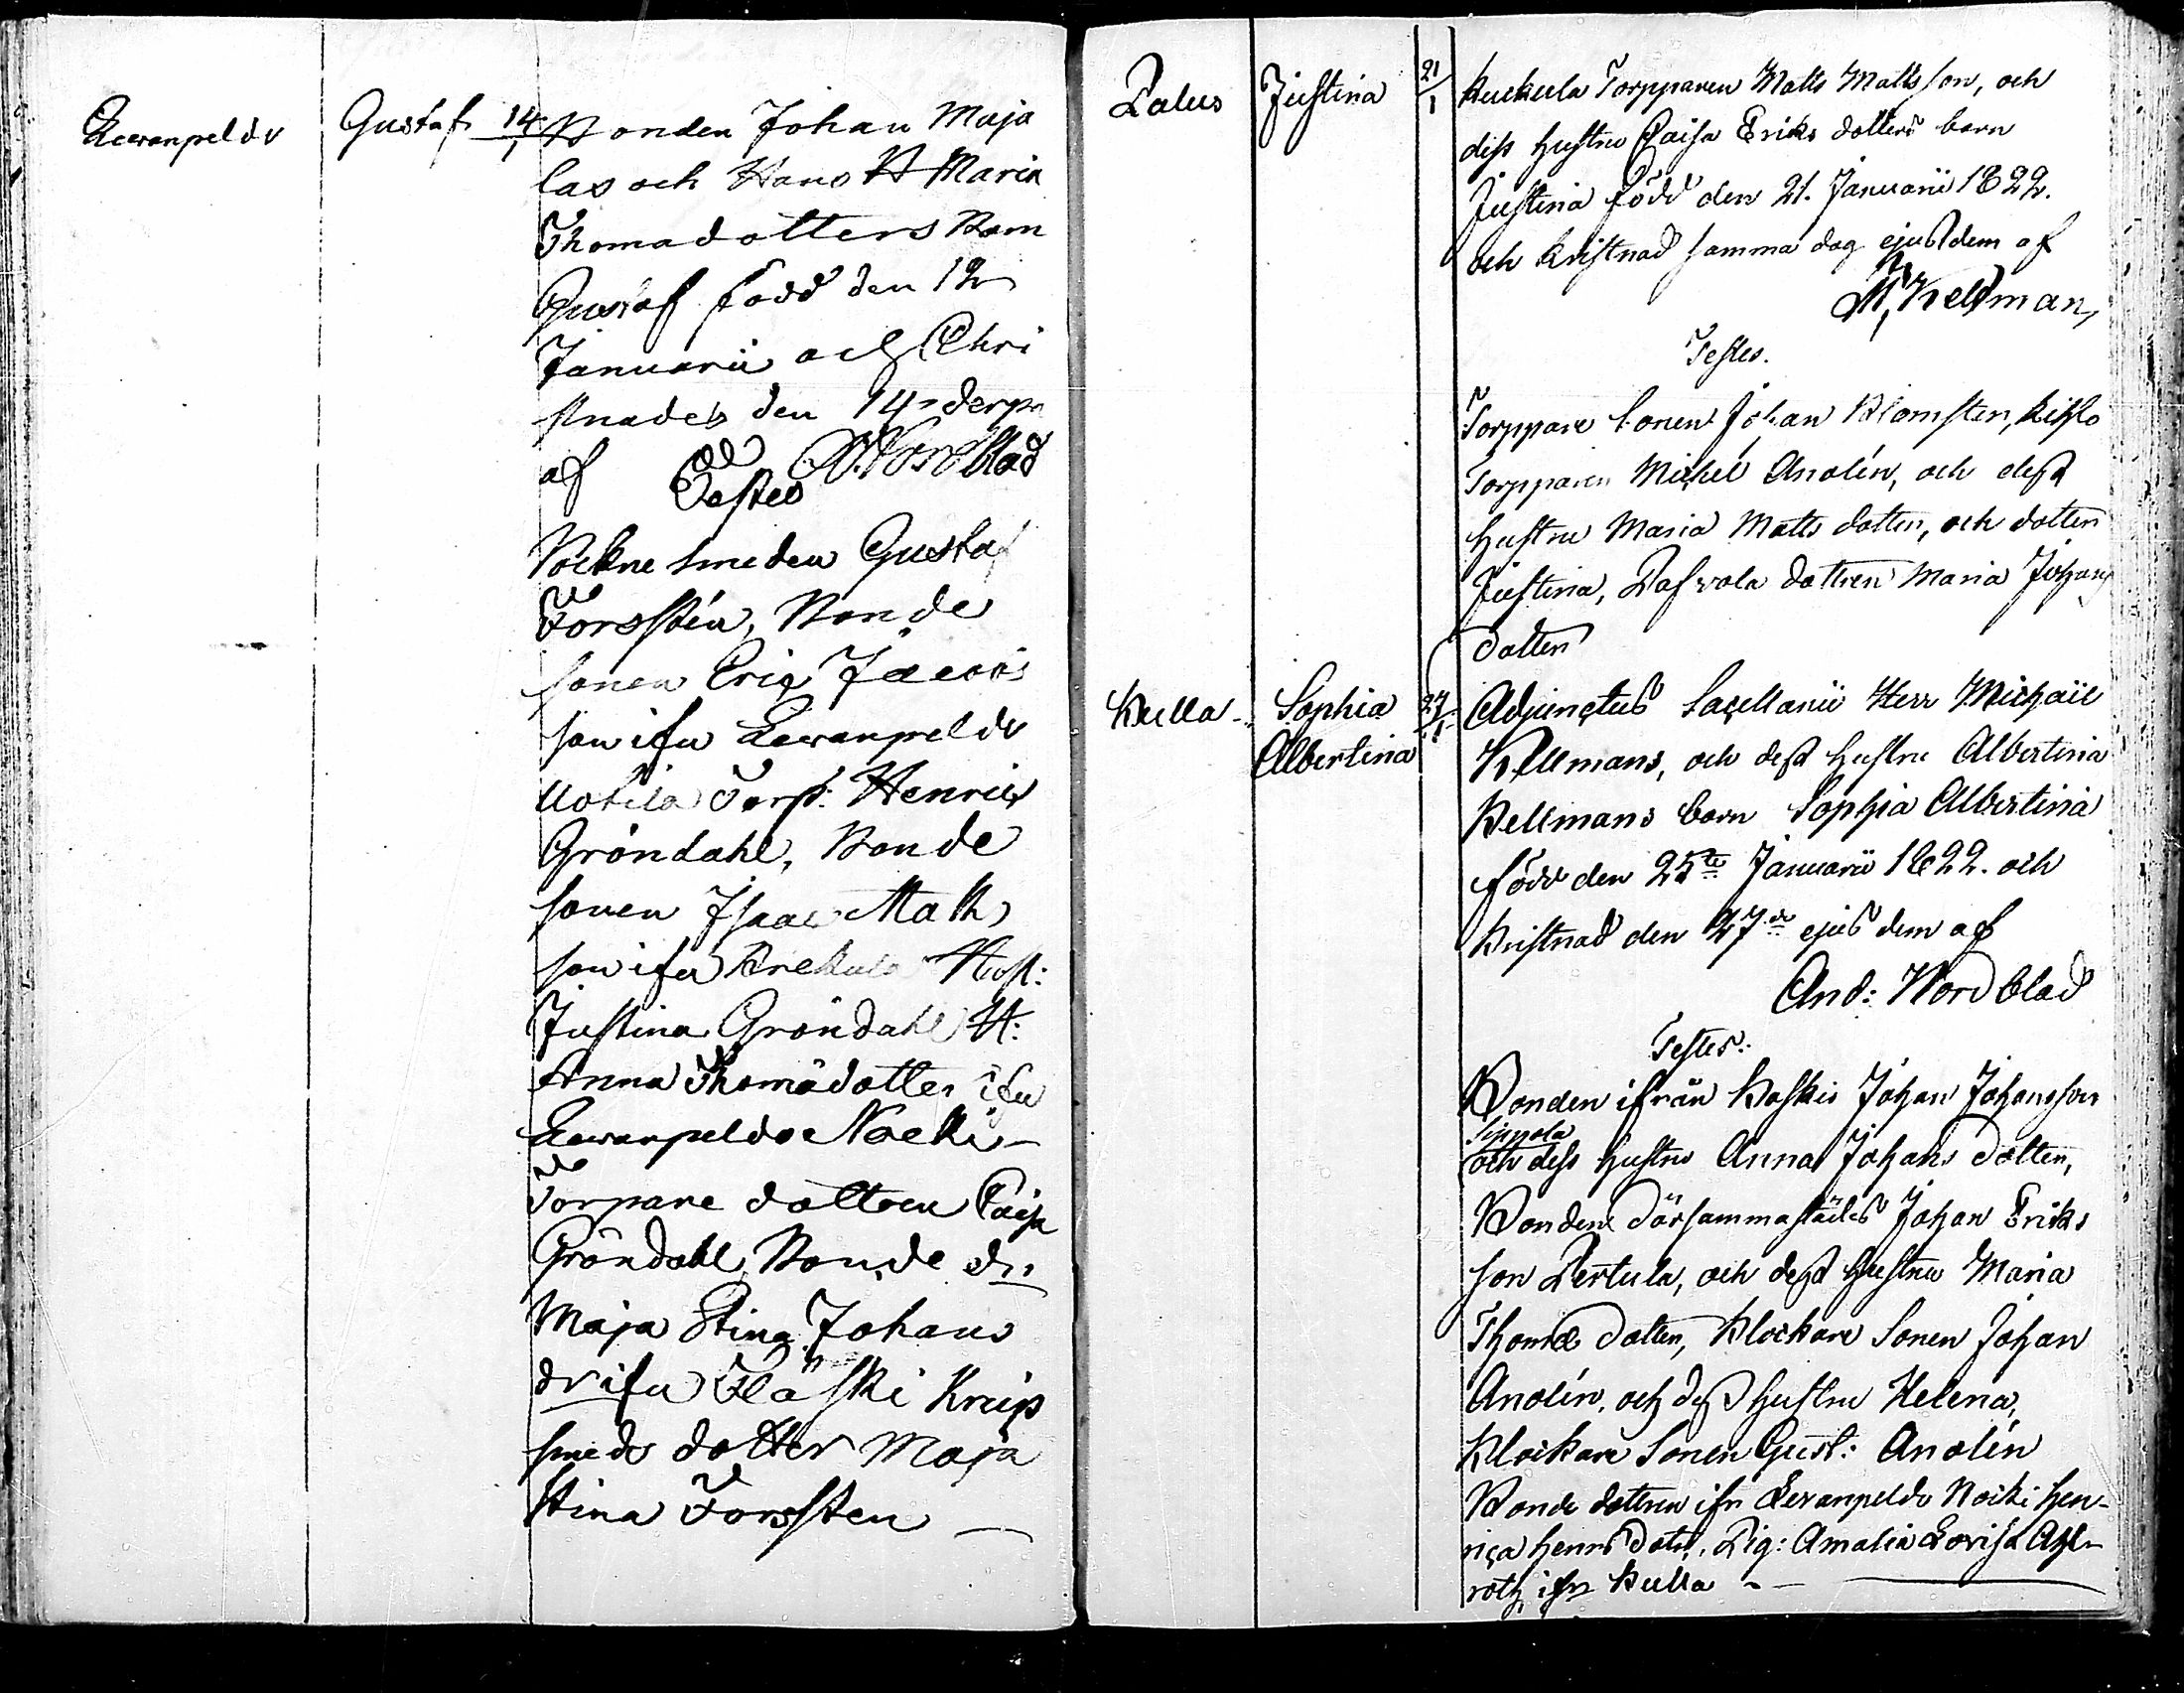 Lewanpeldo
Gustaf
14/1
Bonden Johan Maja
las och Hans H Maria
Thomadotters Barn
Gustaf född den 12
Januarii och Chri
stnades den 14 derpå
af A. Nordblad
Testes
Sockne smeden Gustaf
Forssten, Bonde
sonen Eric Jacobs
son ifrn Lewanpeldo
Uotila Torp: Henric
Gröndahl, Bonde
sonen Isaac Matts
son ifrn Hust:
Justina Gröndahl H:
Anna Thomädotter ifrn
Lewanpeldo Nocki
Torpare dottren Caisa
Gröndahl, Bonde dr
Maja Stina Johans
dr ifrn Fläski
smeds dotter Maja
Stina Forssten
Palus
Justina
21/1
Kuckula Torpparen Matts Mattsson, och
dess hustru Caisa Eriks dotters barn
Justina född den 21. Januarii 1822.
och kristnad samma dag ejusdem af
M. Kellman,
Testes.
Torppare sonen Johan Blomsten,
Torpparen Michel Anolin, och dess
hustru Maria Matts dotter, och dotter
Justina, dottren Maria Johans
dotter
Kulla
Sophia
Albertina
27/1
Adjunctus Sacellanii Herr Michaël
Kellmans, och dess hustru Albertina
Kellmans barn Sophia Albertina
född den 25te Januarii 1822. och
kristnad den 27de ejusdem af
And: Nordblad
Testes:
Bonden ifrån Koskis Johan Johansson
Sippola
och dess hustru Anna Johans dotter,
Bonden därsammastädes Johan Eriks
son Pertula, och dess hustru Maria
Thomæ dotter, Klockare Sonen Johan
Anolin, och dess hustru Helena,
Klockare Sonen Gust: Anolin
Bonde dottren ifn Levanpeldo Nocki Hen-
rica Henrs dotr, Pig: Amalia Lovisa Ahl-
roth, ifrn Kulla